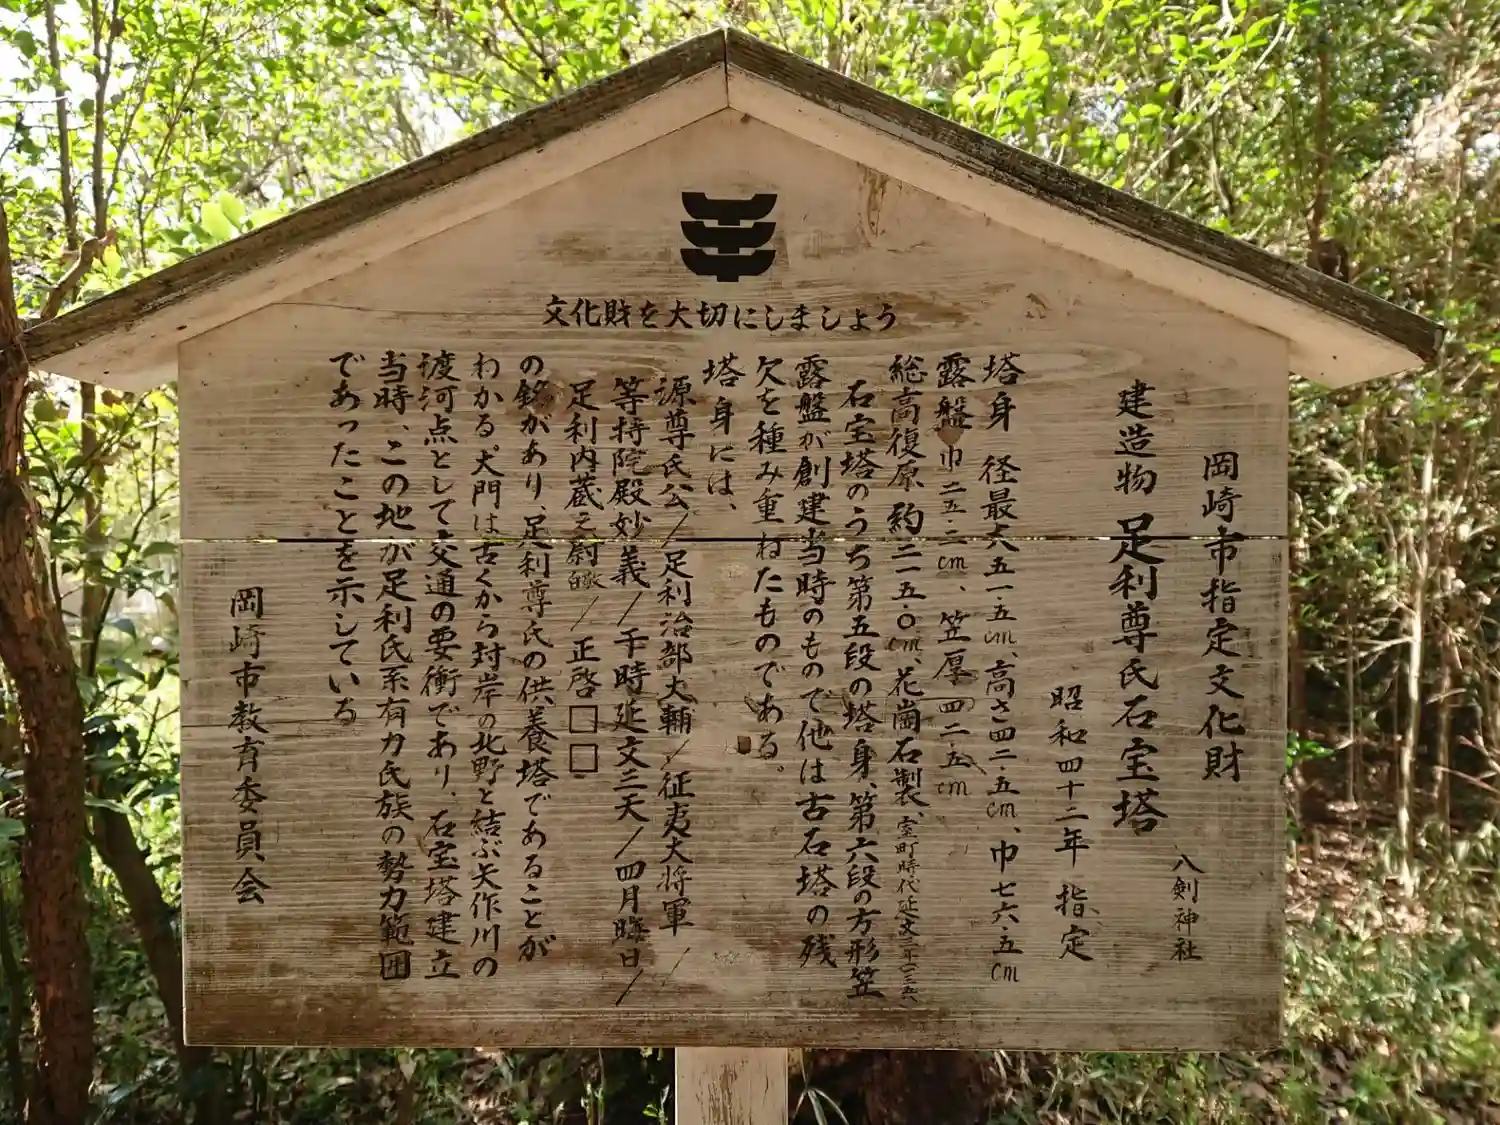 文化財を大切にしましょう
岡崎市指定文化財
八剣神社
建造物 足利尊氏石宝塔
昭和四十二年 指定
塔身 径最大五一・五cm、高さ四二・五cm、巾七六・五cm
露盤 巾二五・二cm、笠厚 四二・五cm
総高復原 約二一五・〇cm、花崗石製、室町時代延文三年(一三五八)
石宝塔のうち第五段の塔身、第六段の方形笠
露盤が創建当時のもので他は古石塔の残
欠を種み重ねたものである。
塔身には、
源尊氏公／足利治部大輔／征夷大将軍／
等持院殿妙義／干時延文三天／四月晦日／
足利内蔵之尉／正啓□□
の銘があり、足利尊氏の供養塔であることが
わかる。大門は古くから対岸の北野と結ぶ矢作川の
渡河点として交通の要衝であり、石宝塔建立
当時、この地が足利氏系有力氏族の勢力範囲
であったことを示している
岡崎市教育委員会